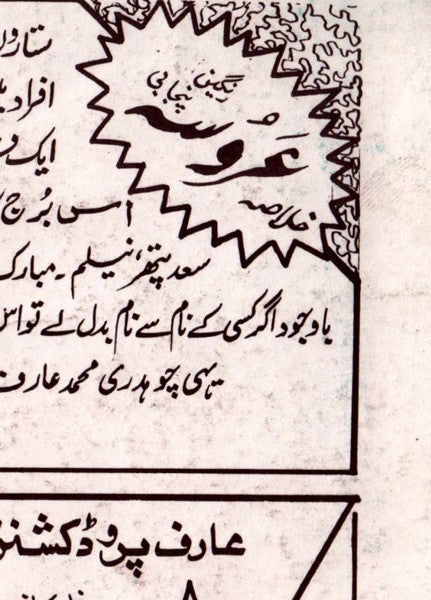 رنگین پنجابی
عروسہ
خلاصہ
ستاروں
افراد
ایک
اس بُرج
سعد پتھر، نیلم۔ مبارک
باوجود اگر کسی کے نام سے نام بدل لے تو اس
یہی چوہدری محمد عارف
عارف پروڈکشنز